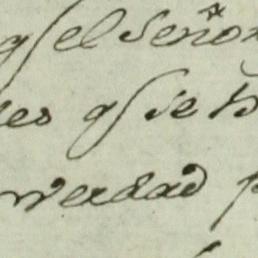 q̃ el Señor
les q̃ se h
verdad p